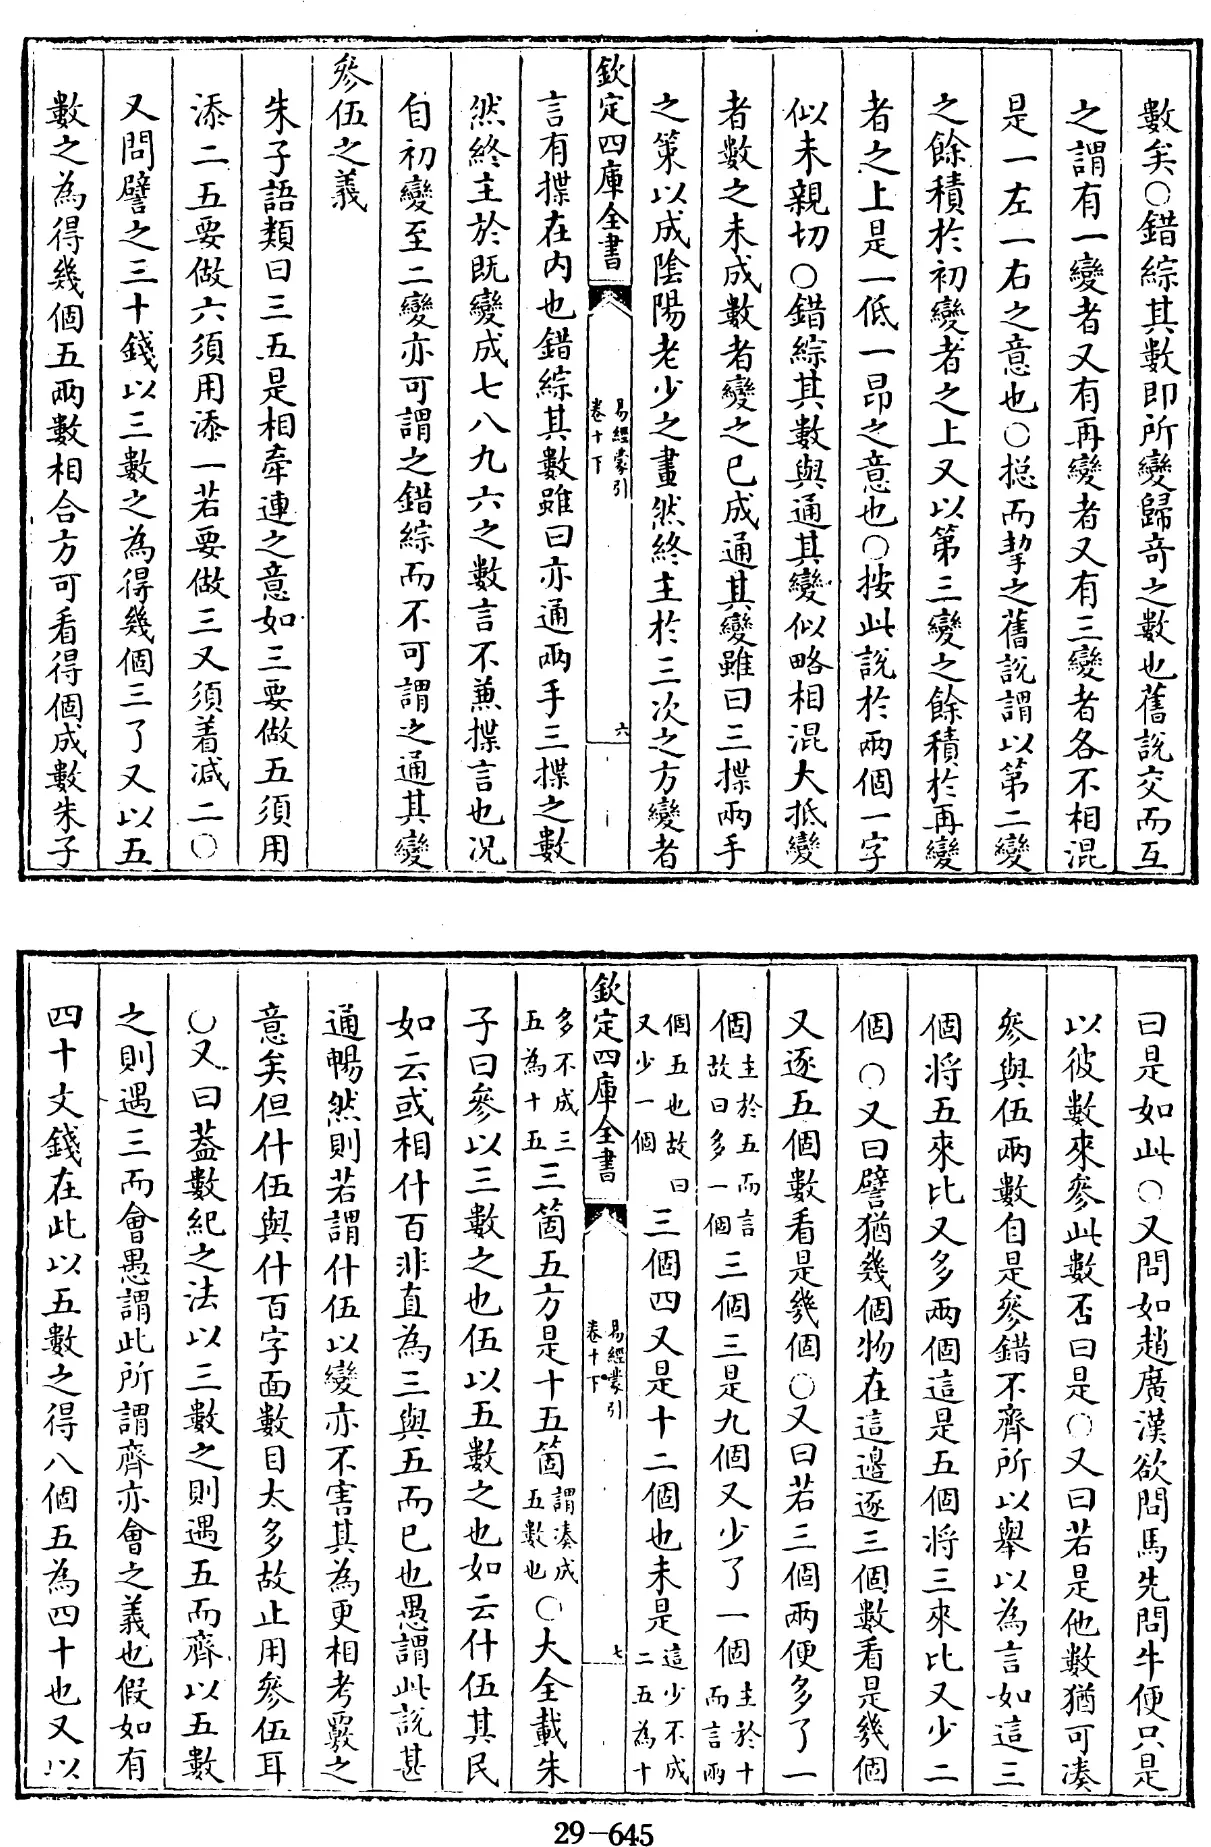 數矣○錯綜其數即所變歸奇之數也舊說交而互
之謂有一變者又有再變者又有三變者各不相混
是一左一右之意也○揔而挈之舊說謂以第二變
之餘積於初變者之上又以第三變之餘積於再變
者之上是一低一昂之意也○按此說於兩個一字
似未親切○錯綜其數與通其變似略相混大抵變
者數之未成數者變之已成通其變雖曰三揲兩手
之策以成陰陽老少之畫然終主於三次之方變者
欽定四庫全書
易經蒙引
卷十下
六
言有揲在内也錯綜其數雖曰亦通兩手三揲之數
然終主於既變成七八九六之數言不兼揲言也况
自初變至二變亦可謂之錯綜而不可謂之通其變
參伍之義
朱子語類曰三五是相牽連之意如三要做五須用
添二五要做六須用添一若要做三又須着減二○
又問譬之三十錢以三數之為得幾個三了又以五
數之為得幾個五兩數相合方可看得個成數朱子
曰是如此○又問如趙廣漢欲問馬先問牛便只是
以彼數來參此數否曰是○又曰若是他數猶可凑
參與伍兩數自是參錯不齊所以舉以為言如這三
個將五來比又多兩個這是五個將三來比又少二
個○又曰譬猶幾個物在這邊逐三個數看是幾個
又逐五個數看是幾個○又曰若三個兩便多了一
個主於五而言故曰多一個三個三是九個又少了一個主於十而言兩
個五也故曰又少一個三個四又是十二個也未是這少不成二五為十
欽定四庫全書
易經蒙引
卷十下
七
多不成三五為十五三箇五方是十五箇謂凑成五數也○大全載朱
子曰參以三數之也伍以五數之也如云什伍其民
如云或相什百非直為三與五而已也愚謂此說甚
通暢然則若謂什伍以變亦不害其為更相考覈之
意矣但什伍與什百字面數目太多故止用參伍耳
○又曰葢數紀之法以三數之則遇五而齊以五數
之則遇三而會愚謂此所謂齊亦會之義也假如有
四十文錢在此以五數之得八個五為四十也又以
29-645